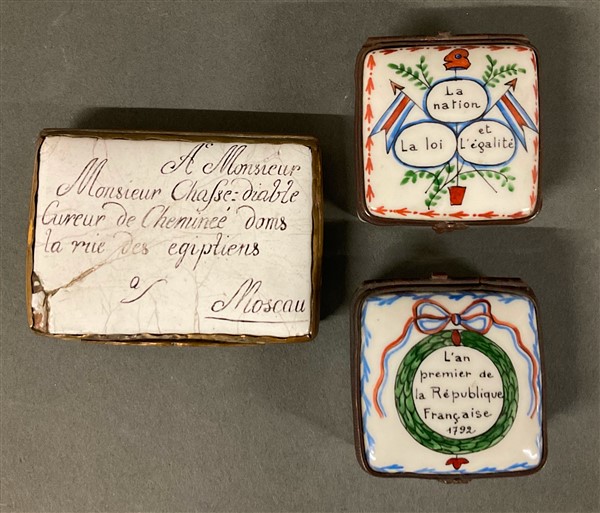 A Monsieur
Monsieur Chasse=diable
Cureur de Chemineé doms
la rüe des egiptiens
as
Moscau
La
nation
La loi
et
L'égalité
L'an
premier de
la République
Française
1792